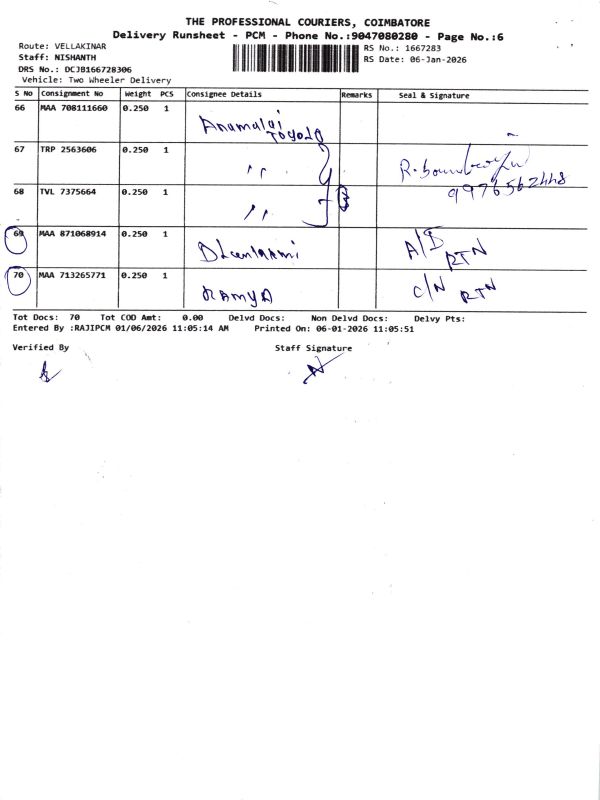 THE PROFESSIONAL COURIERS, COIMBATORE
Delivery Runsheet - PCM - Phone No.:9047080280 - Page No.:6
Route: VELLAKINAR
RS No.: 1667283
Staff: NISHANTH
RS Date: 06-Jan-2026
DRS No.: DCJB166728306
Vehicle: Two Wheeler Delivery
S No Consignment No Weight PCS Consignee Details Remarks Seal & Signature
66 MAA 708111660 0.250 1 Anamalai Toyoto
67 TRP 2563606 0.250 1 ,,
9976562448
68 TVL 7375664 0.250 1 ,,
69 MAA 871068914 0.250 1 Dhanlaxmi A/D RTN
70 MAA 713265771 0.250 1 RAMYA C/N RTN
Tot Docs: 70 Tot COD Amt: 0.00 Delvd Docs: Non Delvd Docs: Delvy Pts:
Entered By :RAJIPCM 01/06/2026 11:05:14 AM Printed On: 06-01-2026 11:05:51
Verified By Staff Signature